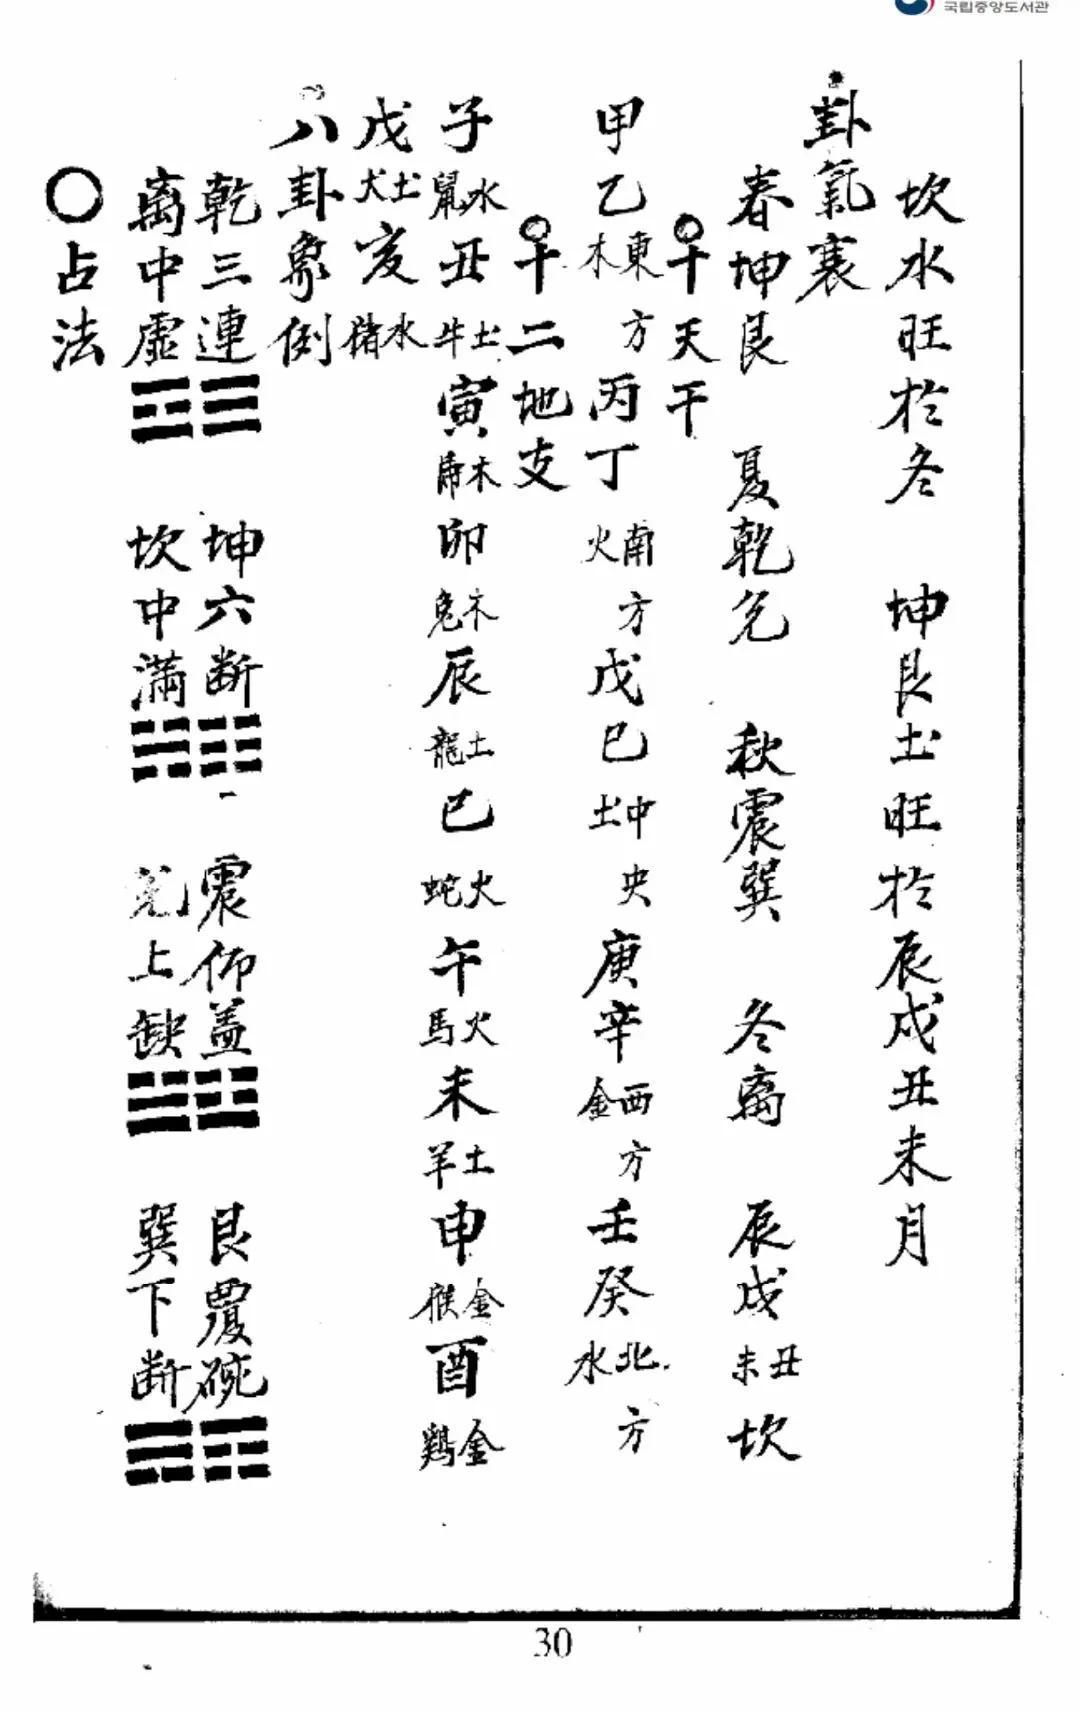 국립중앙도서관
坎水旺於冬 坤艮土旺於辰戌丑未月
卦氣衰
春坤艮 夏乾兌 秋震巽 冬离 辰戌丑未坎
○十天干
甲乙東方木丙丁南方火戊巳中央土庚辛西方金壬癸北方水
○十二地支
子水鼠丑土牛寅木乕卯木兔辰土龍巳火蛇午火馬未土羊申金猴酉金鷄
戌土犬亥水猪
八卦象例
乾三連☰ 坤六断☷ 震仰盂☳ 艮覆碗☶
离中虛☲ 坎中滿☵ 兌上缺☱ 巽下断☴
○占法
30